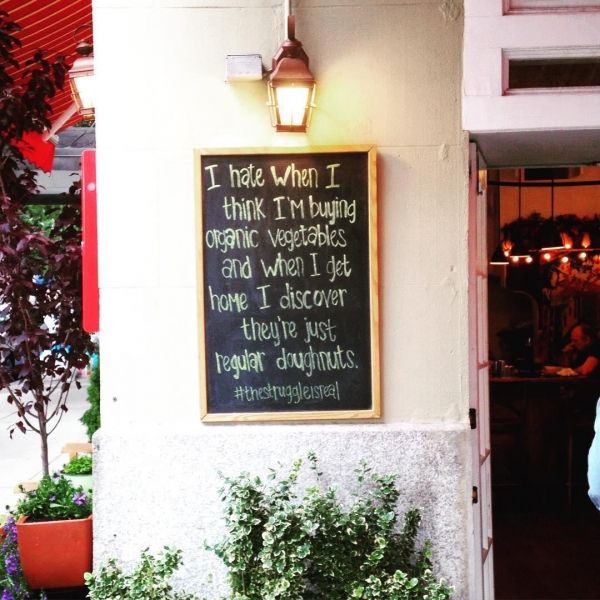 I hate when I
think I'm buying
organic vegetables
and when I get
home I discover
they're just
regular doughnuts.
#thestruggleisreal